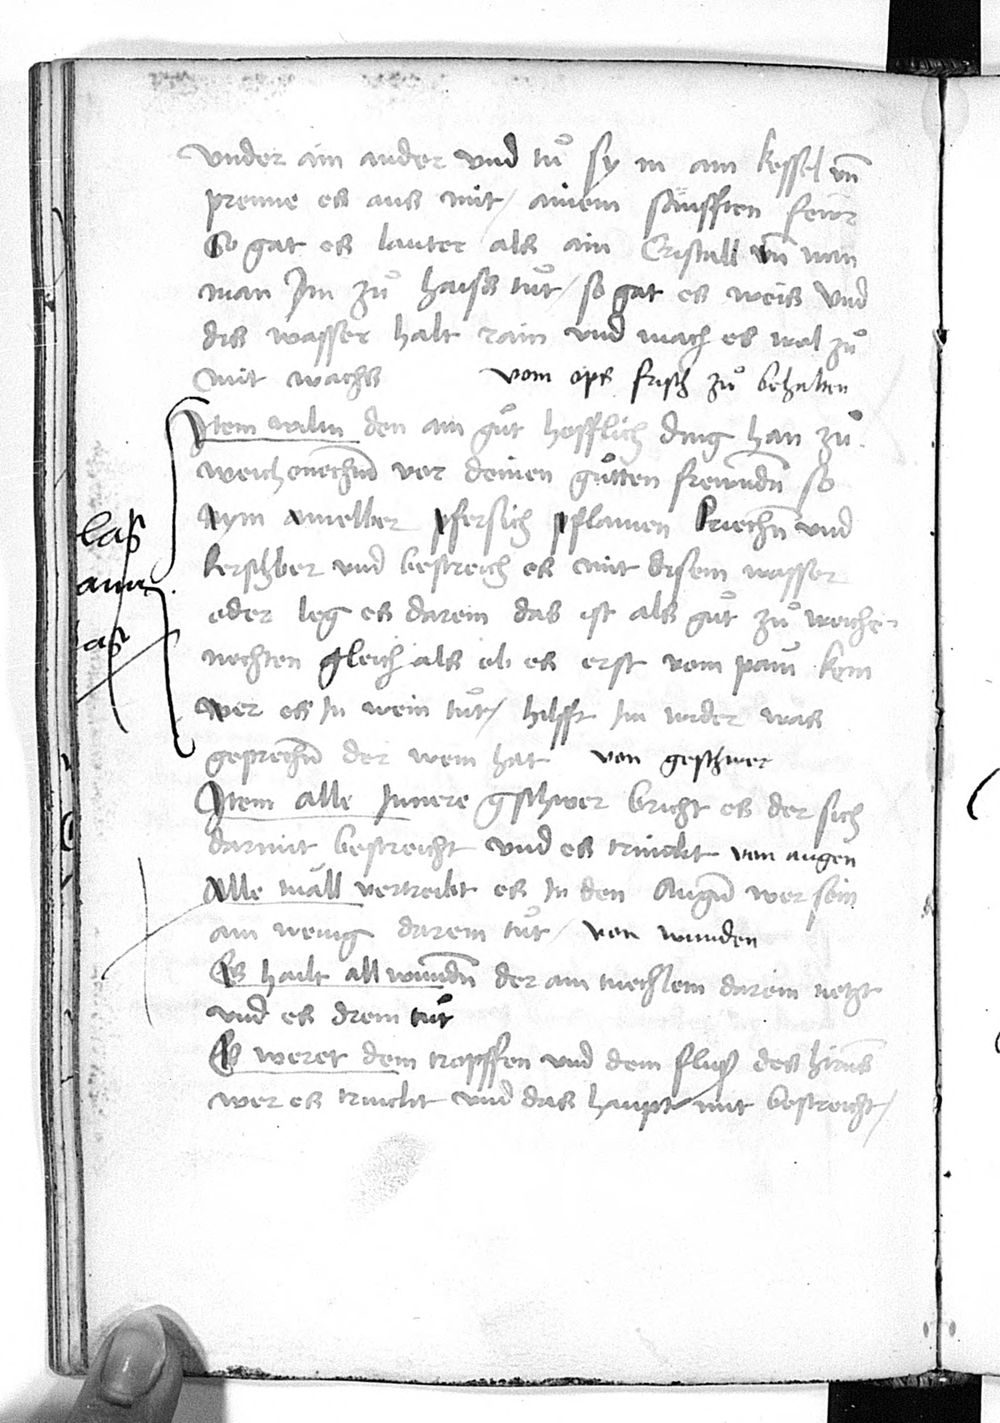 vnder ain ander vnd tuͦ sy in ain kessel vn̄
prenne es aus mit / ainem sänfften fewr
So gat es lauter als ain Cristall vn̄ wan
man Im zuͦ haiss tuͦt / so gat es weis vnd
dis wasser halt rain vnd mach es wol zuͦ
mit wachs vom ops frisch zuͦ behalten
Item wiltu den ain guͦt hofflich ding han zuͦ
weichenechtn̄ vor deinen guͦtten frewndn̄ so
Nym amelber pfersich pflamen kriechn̄ vnd
kerschber vnd bestreich es mit disem wasser
oder leg es darein das ist als guͦt zuͦ weiche-
nechten gleich als ob es erst vom paum kem
wer es In wein tuͦt / hilfft Im wider was
geprechn̄ der wein hat von geschwer
Item alle Innere gschwer bricht es der sich
darmit bestreicht vnd es trinckt von augen
Alle mäll vertreibt es In den Augn̄ wer sein
ain wenig darein tuͦt / von wunden
Es hailt all wundn̄ der ain tuechlein darein netzt
vnd es drein tuͦt
Es weret dem tropffen vnd dem fluß des hirns
wer es trinckt vnd das haupt mit bestreicht /
las
aus
las